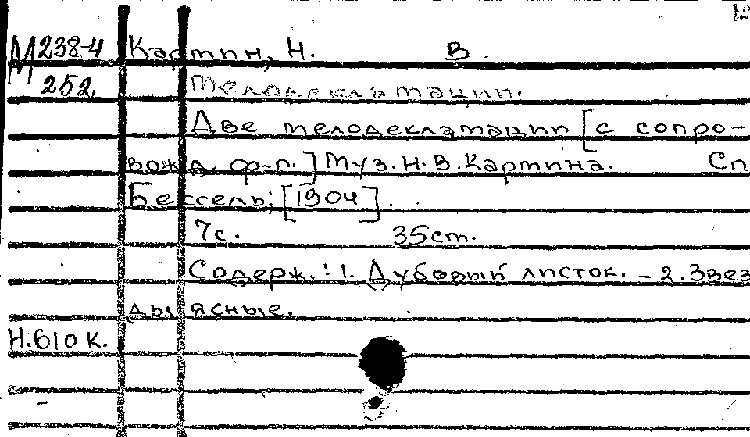 М 238-4 Картин, Н. В.
252. Мелодекламации.
Две мелодекламации [с сопро-
вожд. ф-п.] Муз. Н. В. Картина. Сп
Бессель; [1904]
7с. 35ст.
Содерж.: 1. Дубовый листок. – 2. Звез
ды ясные.
Н. 610 к.